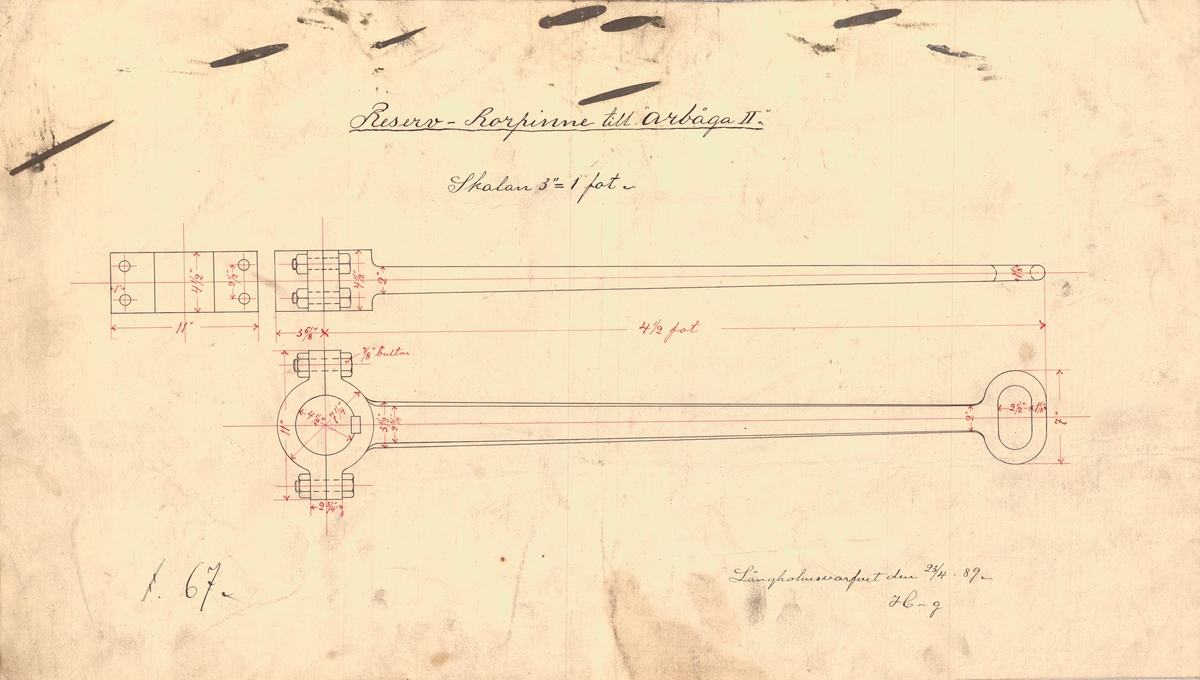 Reserv-Rorpinne till "Arboga II".
Skalan 3" = 1 fot
1"
4½"
2½"
11"
4½"
2"
1⅜"
3 5/8"
4½ fot
7/8" bultar
11"
4½"
7¼"
3½"
2¾"
2"
2½"
1⅜"
7"
2¾"
f. 67.
Långholmsvarfvet den 23/4 89
HC-g